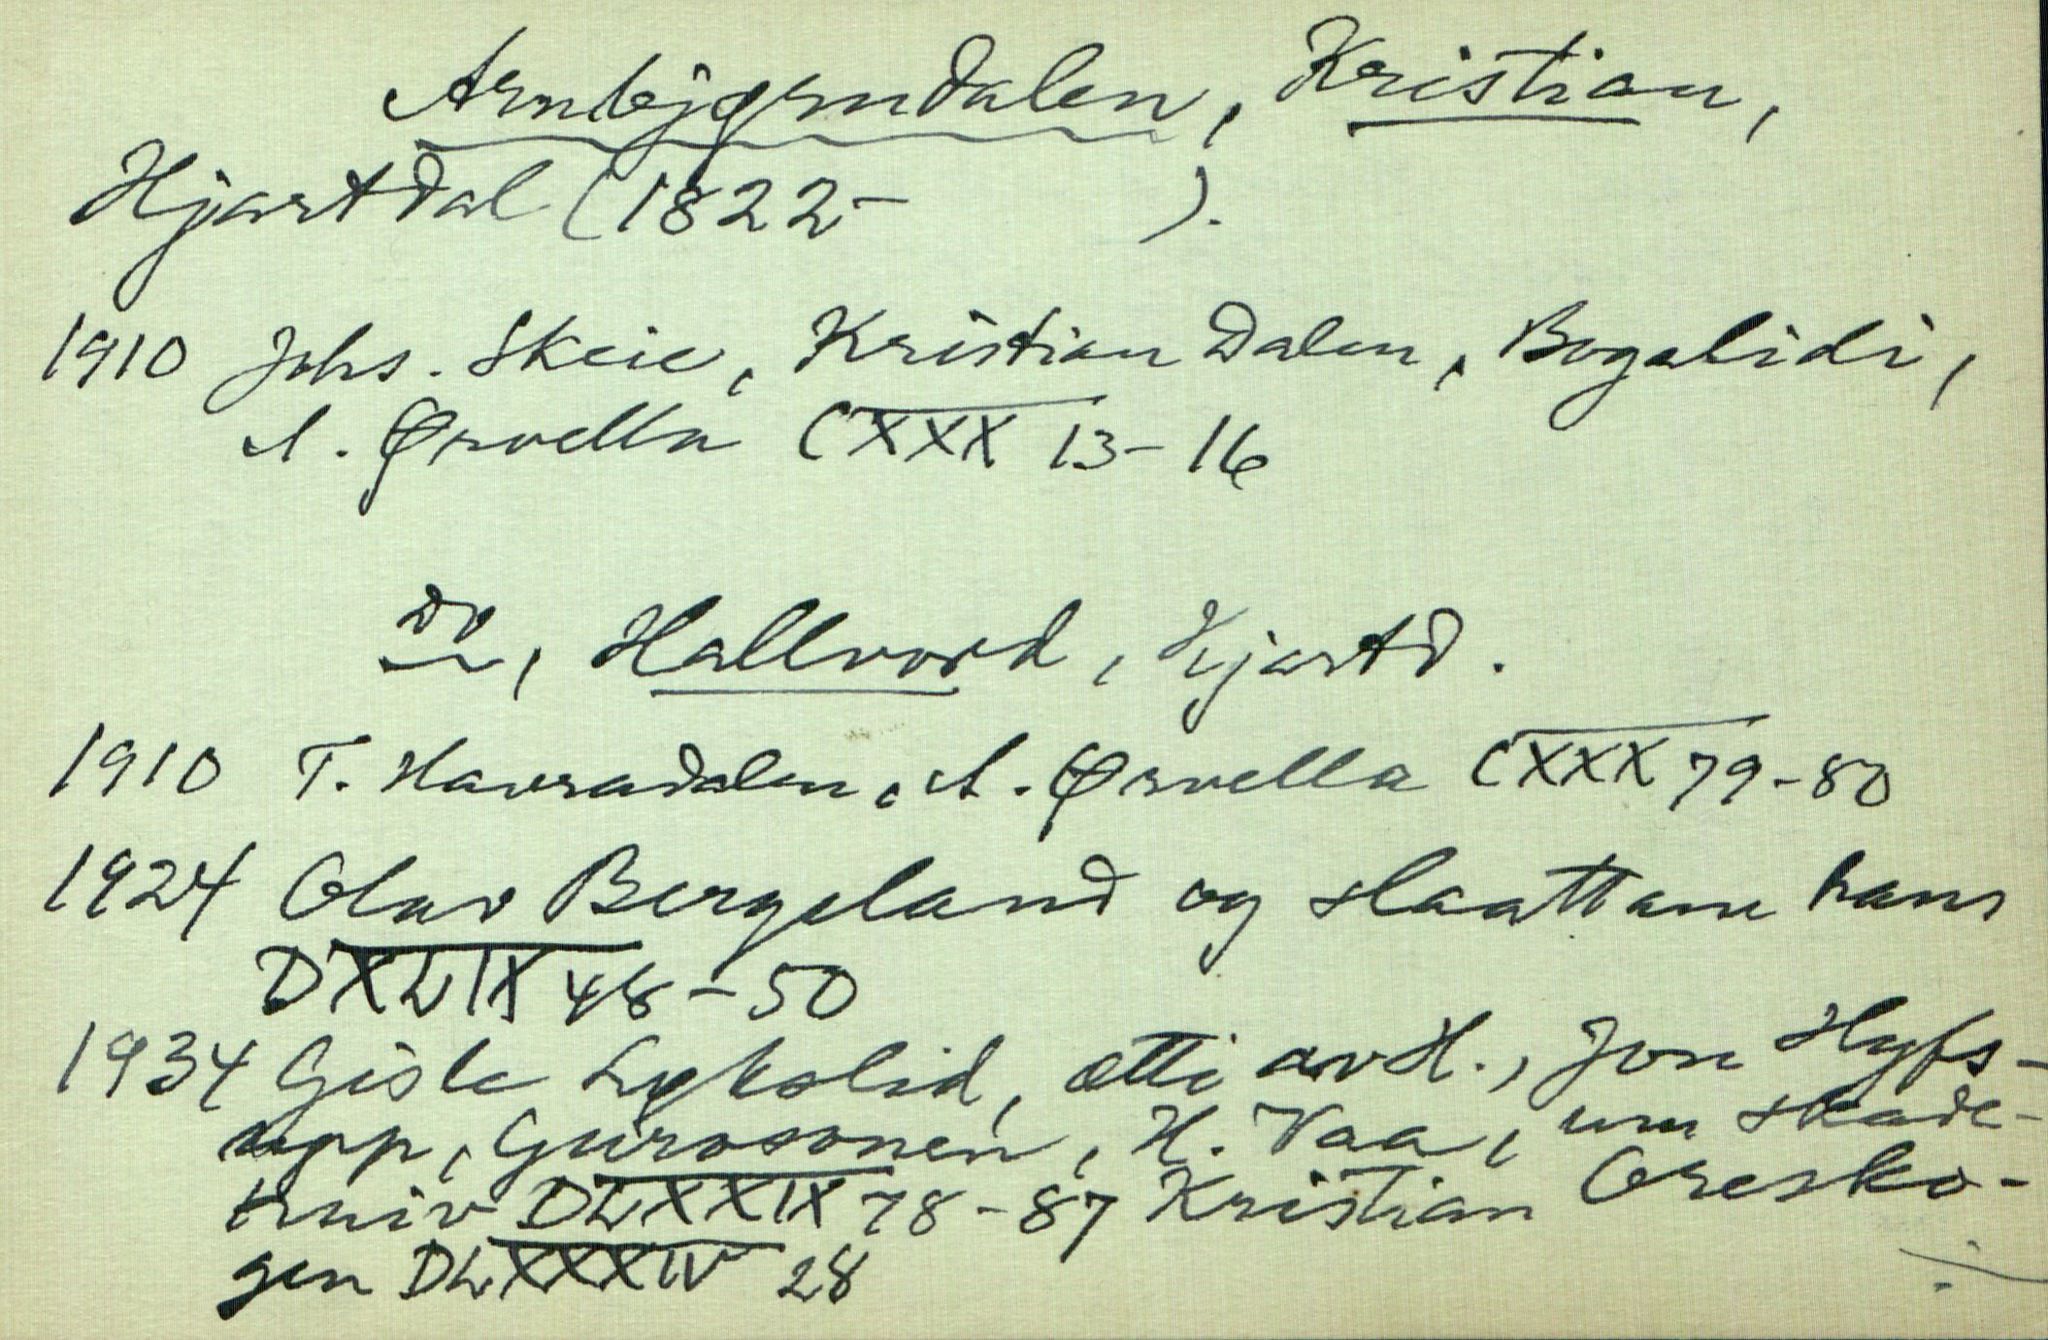 Arnbjørndalen, Kristian,
Hjartdal (1822- ).
1910 Johs. Skeie, Kristian Dalen, Bogalidi,
A. Ørvella CXXX 13-16
Do, Hallvord, Hjartd.
1910 T. Havradalen, A. Ørvella CXXX 79-80
1924 Olav Bergeland og slaattane hans
DXLIX 48-50
1934 Gisle Lykslid, ætti av H., Jon Hyfs-
upp, Gurosonen, H. Vaa, um skade-
kniv DLXXIX 78-87 Kristian Oresko-
gen DLXXXIV 28